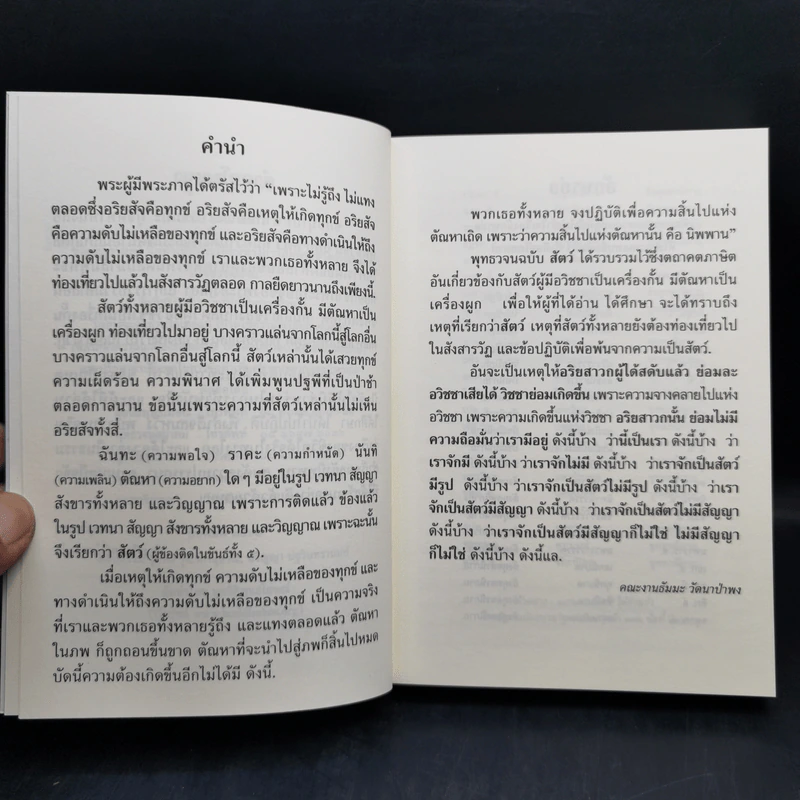 คำนำ
พระผู้มีพระภาคได้ตรัสไว้ว่า “เพราะไม่รู้ถึง ไม่แทง
ตลอดซึ่งอริยสัจคือทุกข์ อริยสัจคือเหตุให้เกิดทุกข์ อริยสัจ
คือความดับไม่เหลือของทุกข์ และอริยสัจคือทางดำเนินให้ถึง
ความดับไม่เหลือของทุกข์ เราและพวกเธอทั้งหลาย จึงได้
ท่องเที่ยวไปแล้วในสังสารวัฏตลอด กาลยืดยาวนานถึงเพียงนี้.
สัตว์ทั้งหลายผู้มีอวิชชาเป็นเครื่องกั้น มีตัณหาเป็น
เครื่องผูก ท่องเที่ยวไปมาอยู่ บางคราวแล่นจากโลกนี้สู่โลกอื่น
บางคราวแล่นจากโลกอื่นสู่โลกนี้ สัตว์เหล่านั้นได้เสวยทุกข์
ความเผ็ดร้อน ความพินาศ ได้เพิ่มพูนปฐพีที่เป็นป่าช้า
ตลอดกาลนาน ข้อนั้นเพราะความที่สัตว์เหล่านั้นไม่เห็น
อริยสัจทั้งสี่.
ฉันทะ (ความพอใจ) ราคะ (ความกำหนัด) นันทิ
(ความเพลิน) ตัณหา (ความอยาก) ใด ๆ มีอยู่ในรูป เวทนา สัญญา
สังขารทั้งหลาย และวิญญาณ เพราะการติดแล้ว ข้องแล้ว
ในรูป เวทนา สัญญา สังขารทั้งหลาย และวิญญาณ เพราะฉะนั้น
จึงเรียกว่า สัตว์ (ผู้ข้องติดในขันธ์ทั้ง ๕).
เมื่อเหตุให้เกิดทุกข์ ความดับไม่เหลือของทุกข์ และ
ทางดำเนินให้ถึงความดับไม่เหลือของทุกข์ เป็นความจริง
ที่เราและพวกเธอทั้งหลายรู้ถึง และแทงตลอดแล้ว ตัณหา
ในภพ ก็ถูกถอนขึ้นขาด ตัณหาที่จะนำไปสู่ภพก็สิ้นไปหมด
บัดนี้ความต้องเกิดขึ้นอีกไม่ได้มี ดังนี้.
พวกเธอทั้งหลาย จงปฏิบัติเพื่อความสิ้นไปแห่ง
ตัณหาเถิด เพราะว่าความสิ้นไปแห่งตัณหานั้น คือ นิพพาน”
พุทธวจนฉบับ สัตว์ ได้รวบรวมไว้ซึ่งตถาคตภาษิต
อันเกี่ยวข้องกับสัตว์ผู้มีอวิชชาเป็นเครื่องกั้น มีตัณหาเป็น
เครื่องผูก เพื่อให้ผู้ที่ได้อ่าน ได้ศึกษา จะได้ทราบถึง
เหตุที่เรียกว่าสัตว์ เหตุที่สัตว์ทั้งหลายยังต้องท่องเที่ยวไป
ในสังสารวัฏ และข้อปฏิบัติเพื่อพ้นจากความเป็นสัตว์.
อันจะเป็นเหตุให้อริยสาวกผู้ได้สดับแล้ว ย่อมละ
อวิชชาเสียได้ วิชชาย่อมเกิดขึ้น เพราะความจางคลายไปแห่ง
อวิชชา เพราะความเกิดขึ้นแห่งวิชชา อริยสาวกนั้น ย่อมไม่มี
ความถือมั่นว่าเรามีอยู่ ดังนี้บ้าง ว่านี้เป็นเรา ดังนี้บ้าง ว่า
เราจักมี ดังนี้บ้าง ว่าเราจักไม่มี ดังนี้บ้าง ว่าเราจักเป็นสัตว์
มีรูป ดังนี้บ้าง ว่าเราจักเป็นสัตว์ไม่มีรูป ดังนี้บ้าง ว่าเรา
จักเป็นสัตว์มีสัญญา ดังนี้บ้าง ว่าเราจักเป็นสัตว์ไม่มีสัญญา
ดังนี้บ้าง ว่าเราจักเป็นสัตว์มีสัญญาก็ไม่ใช่ ไม่มีสัญญา
ก็ไม่ใช่ ดังนี้บ้าง ดังนี้แล.
คณะงานธัมมะ วัดนาป่าพง